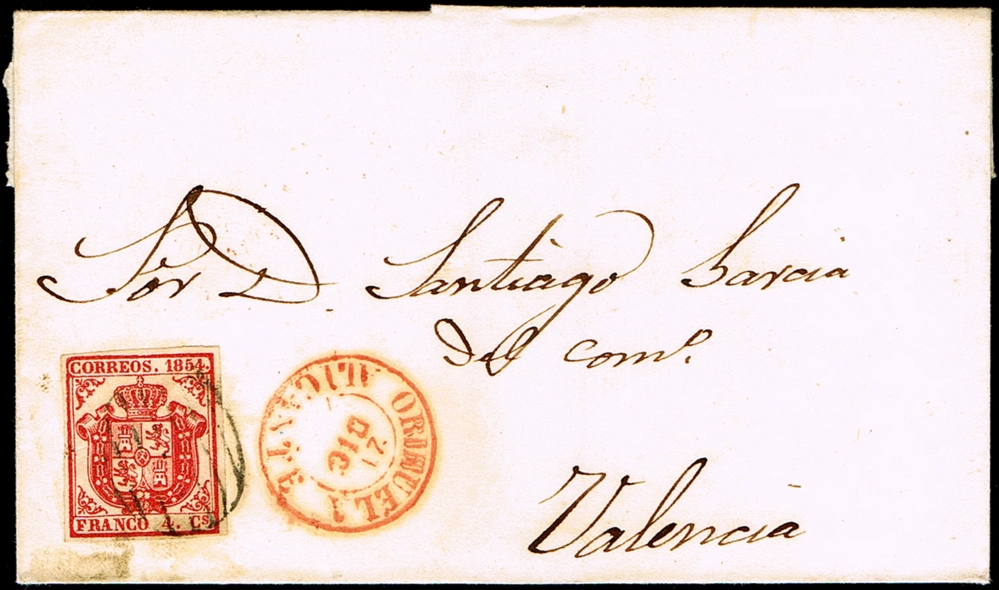 Sor D. Santiago Garcia
del comº.
Valencia
CORREOS. 1854.
FRANCO 4. Cs
ORIHUELA
ALICANTE
DIC